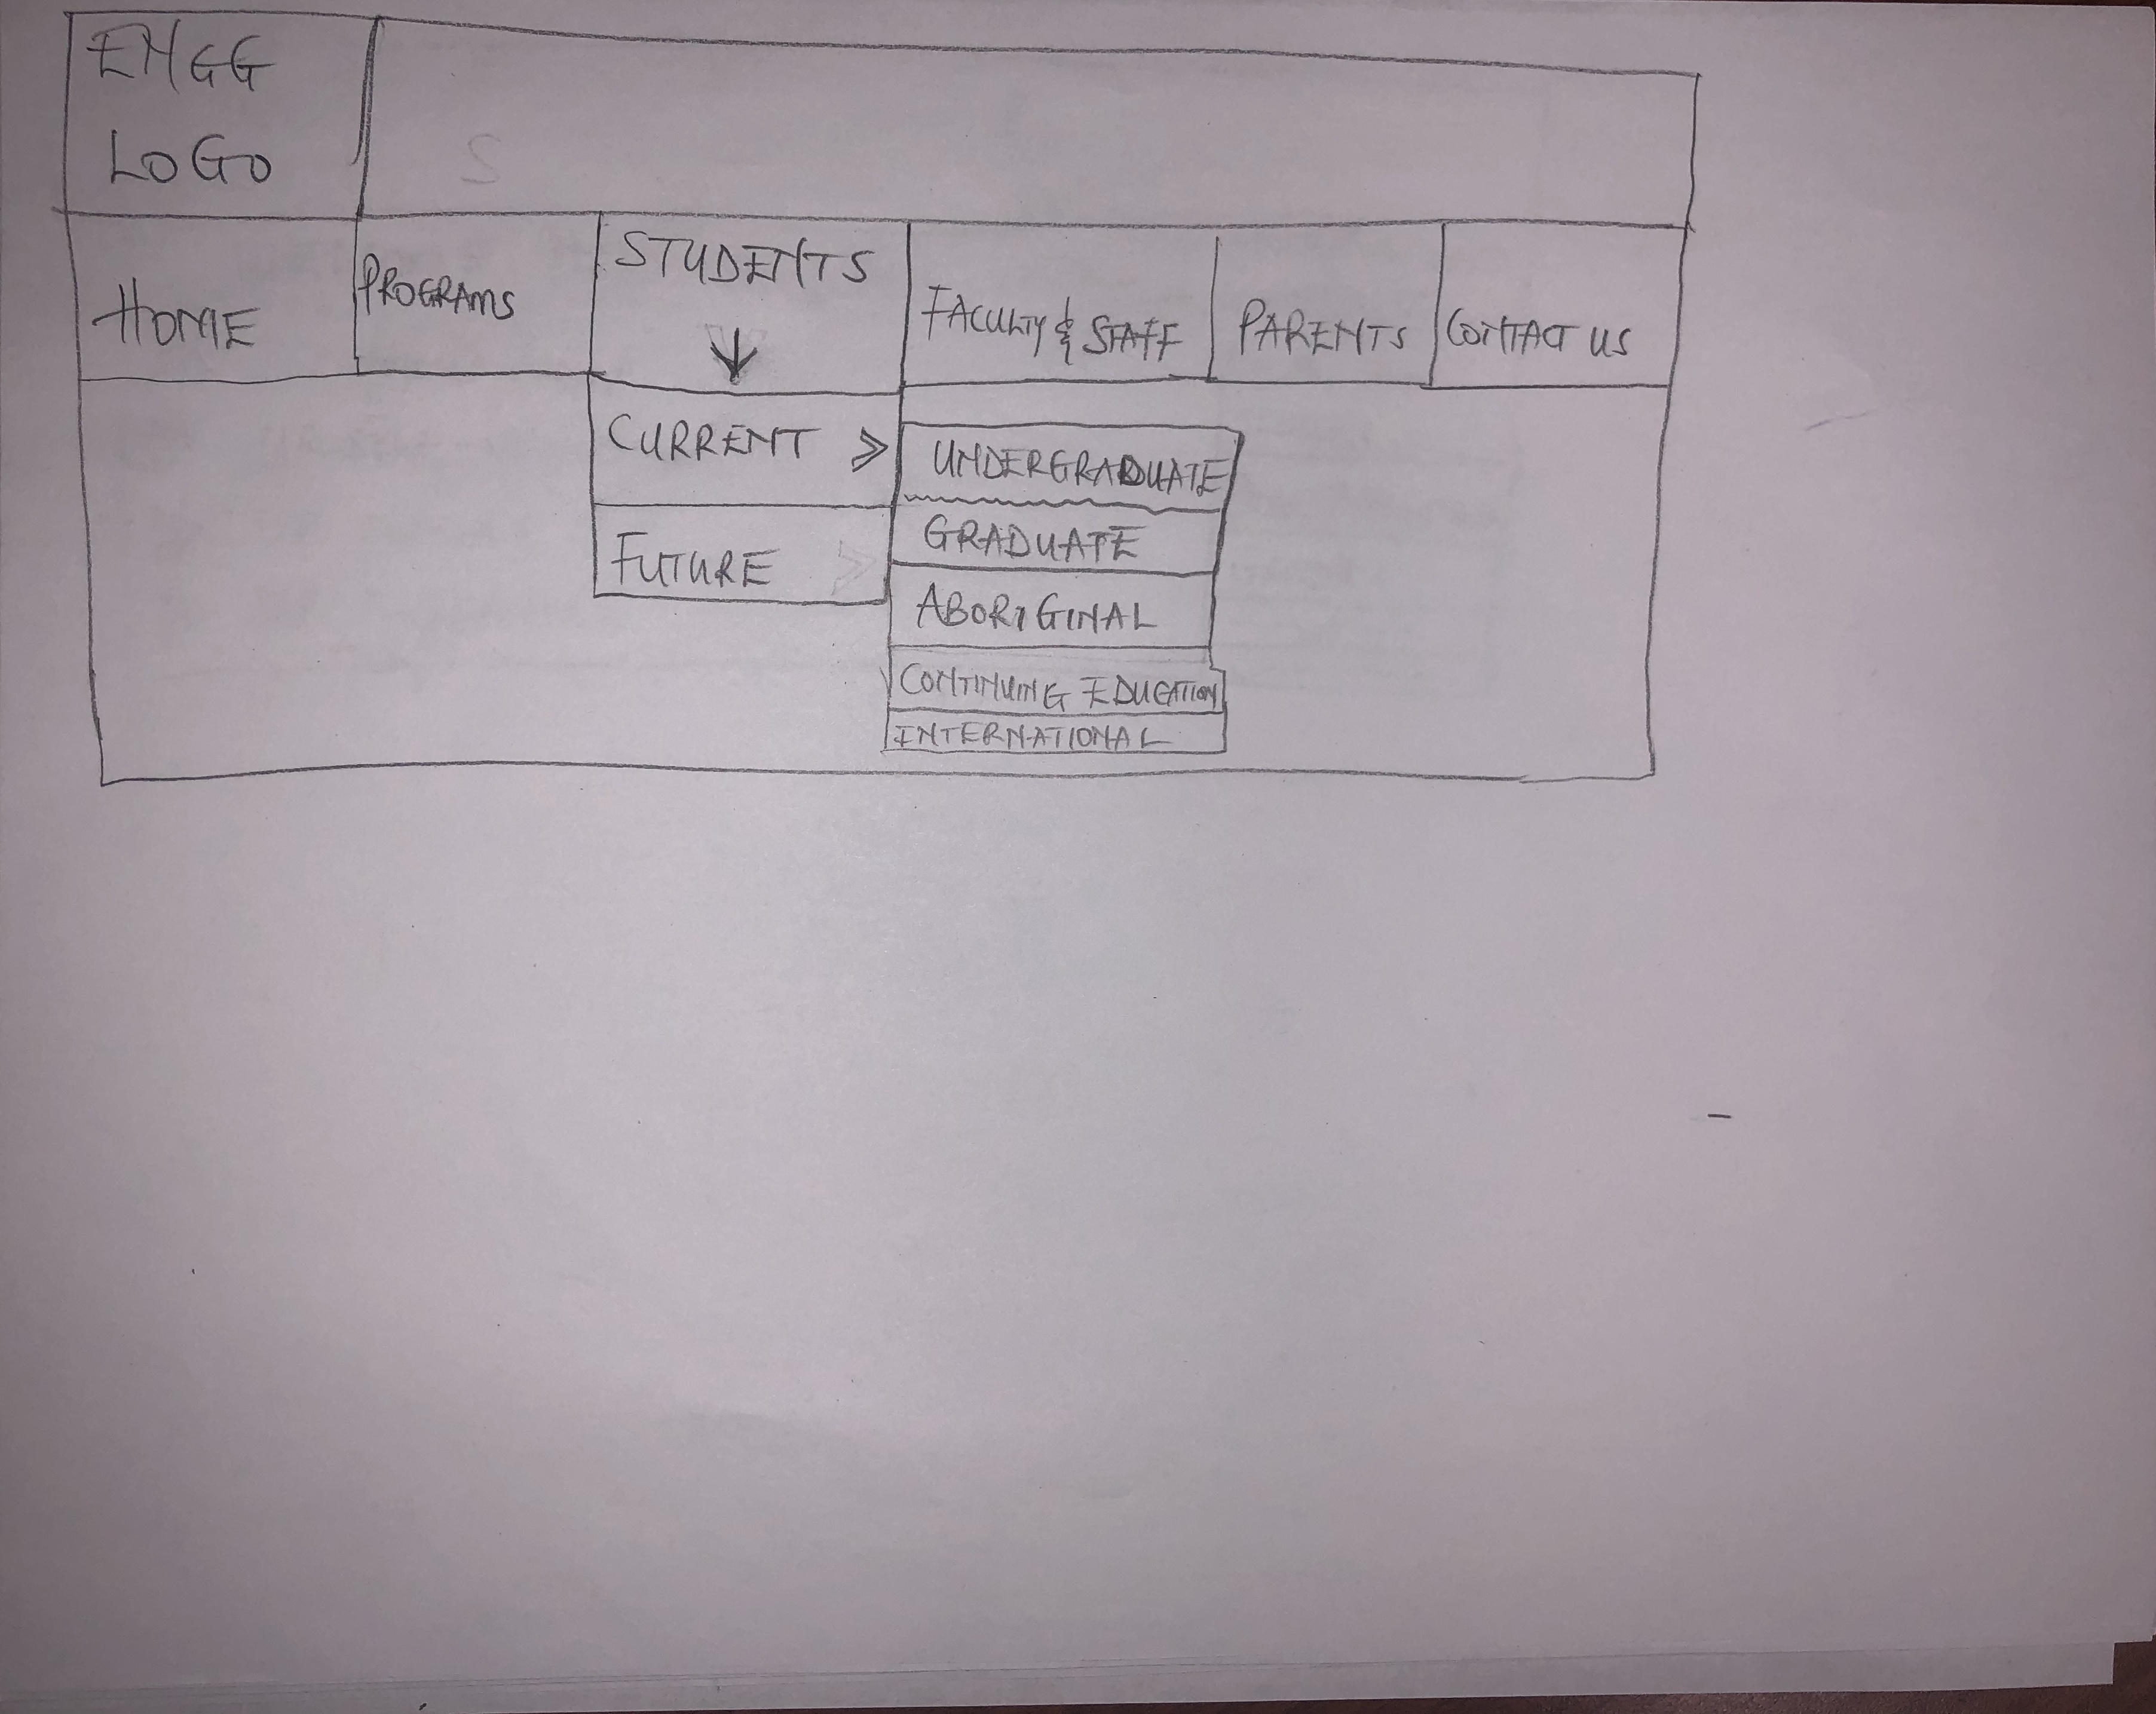 ENGG
LOGO
S
HOME
PROGRAMS
STUDENTS
FACULTY & STAFF
PARENTS
CONTACT US
CURRENT >>
UNDERGRADUATE
GRADUATE
FUTURE >>
ABORIGINAL
CONTINUING EDUCATION
INTERNATIONAL